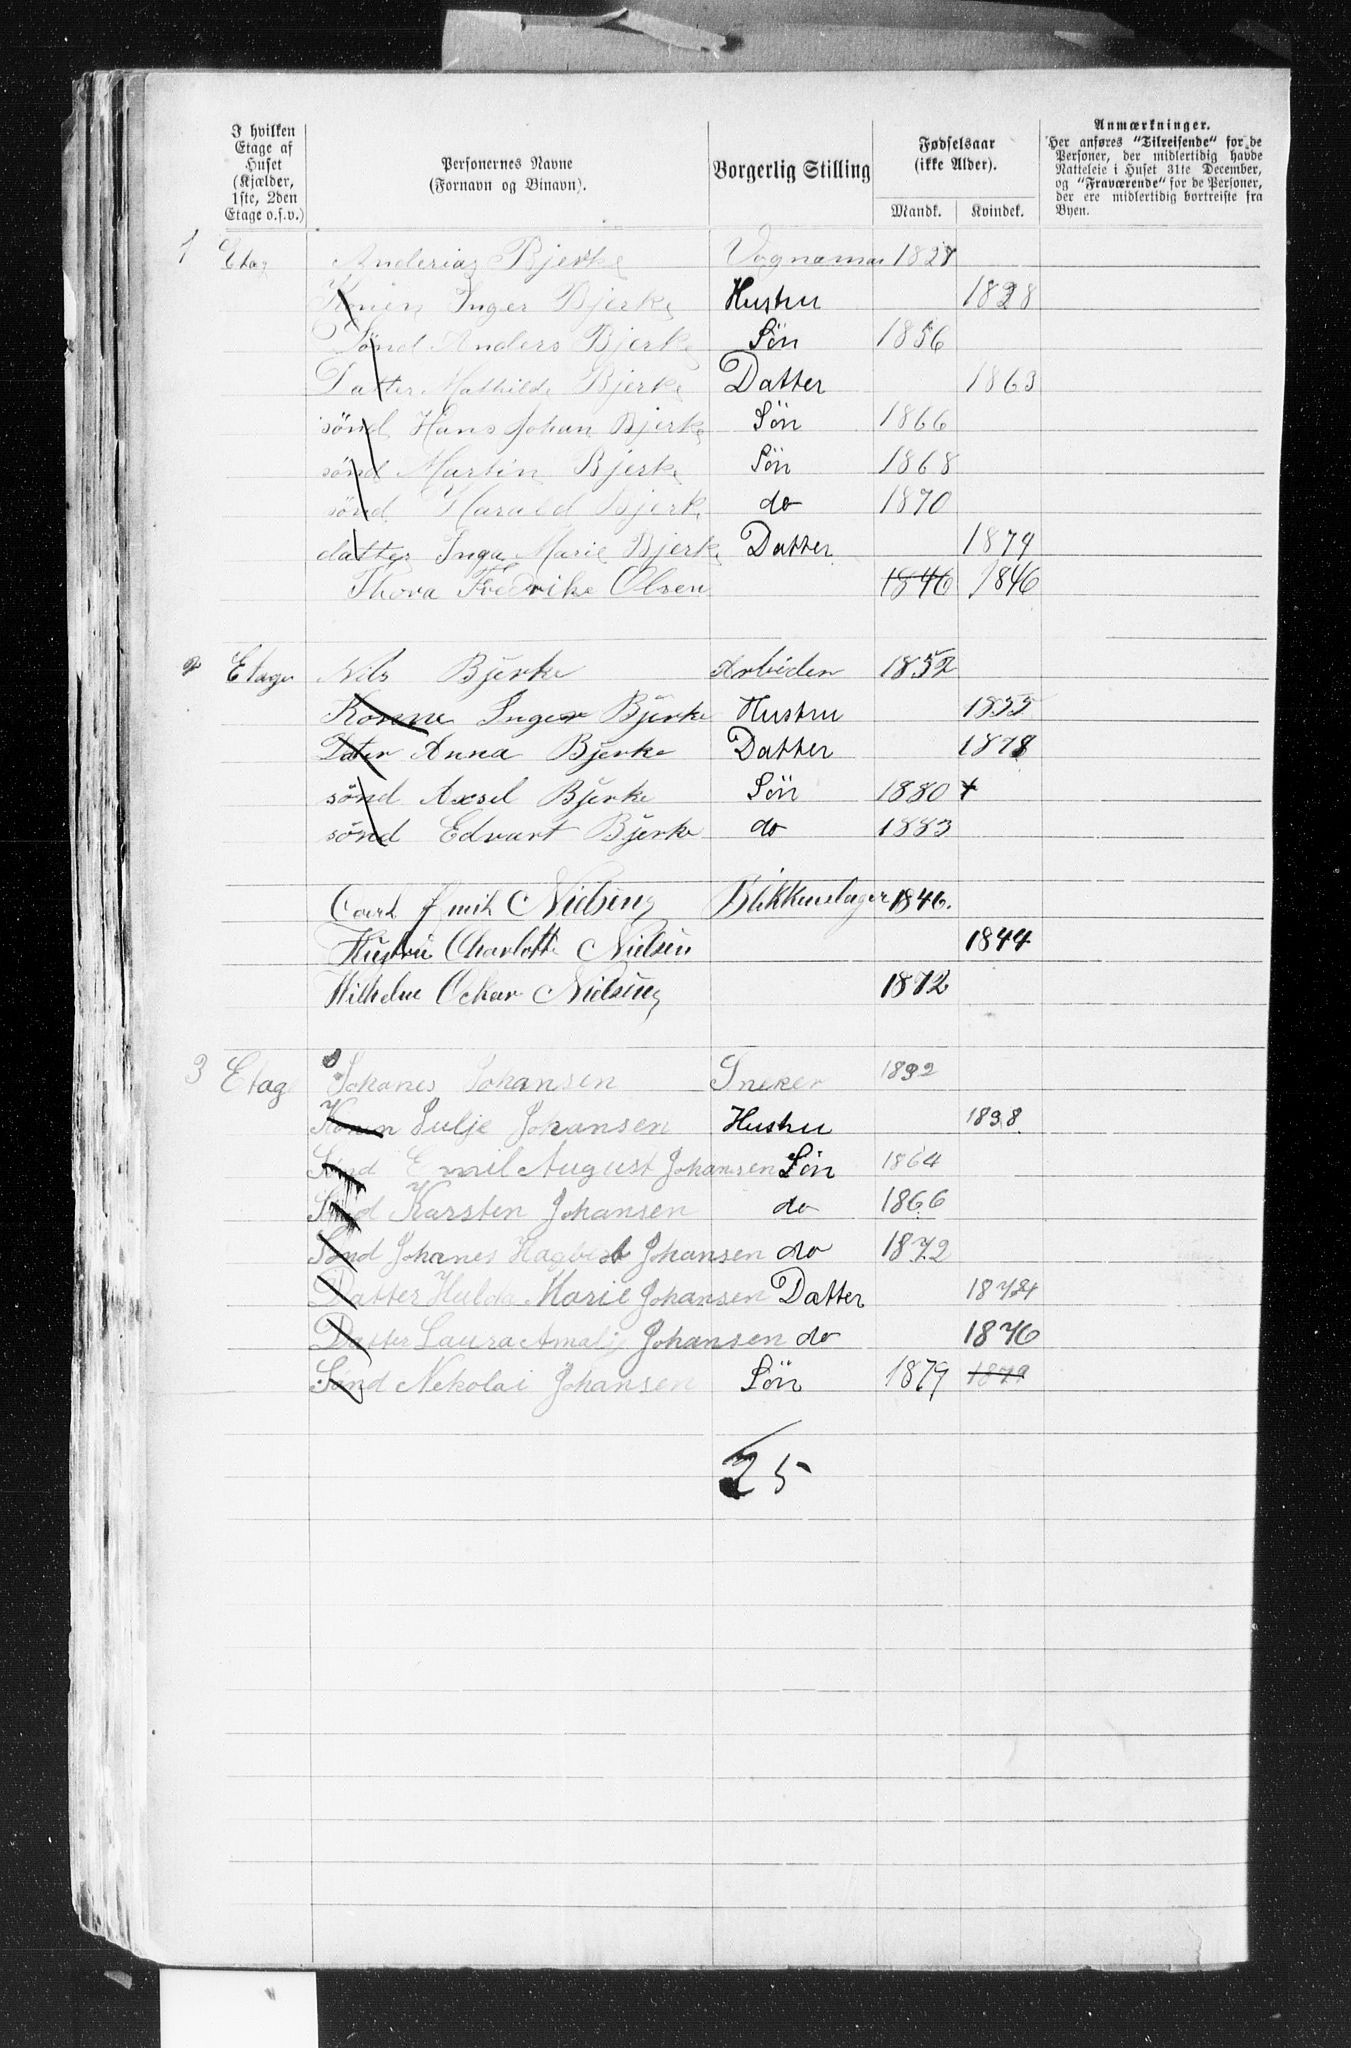 I hvilken Etage af Huset (Kjælder, 1ste, 2den Etage o.s.v.)
Personernes Navne (Fornavn og Binavn).
Borgerlig Stilling
Fødselsaar (ikke Alder).
Mandk.
Kvindek.
Anmærkninger.
Her anføres "Tilreisende" for de Personer, der midlertidig havde Natteleie i Huset 31te December, og "Fraværende" for de Personer, der ere midlertidig bortreiste fra Byen.
1 Etag Anderias Bjerke Vognaman 1828
Konen Inger Bjerke Hustru 1828
Sönd Anders Bjerke Sön 1856
Datter Mathilde Bjerke Datter 1863
sönd Hans Johan Bjerke Sön 1866
sönd Martin Bjerke Sön 1868
sönd Harald Bjerke do 1870
datter Inga Marie Bjerke Datter 1874
Thora Fredrike Olsen 1846 1846
2 Etage Nils Bjerke Arbeider 1852
Konne Inger Bjerke Hustru 1855
Dater Anna Bjerke Datter 1878
sönd Axsel Bjerke Sön 1880
sönd Edvart Bjerke do 1883
Carl Emil Nielsen Blikkenslager 1846.
Hustru Charlotte Nielsen 1844
Wilhelm Oskar Nielsen 1872
3 Etag Johanes Johansen Sneker 1832
Konen Julje Johansen Hustru 1838
Sönd Emil August Johansen Sön 1864
Sönd Karsten Johansen do 1866
Sönd Johanes Hagbart Johansen do 1872
Datter Hulda Marie Johansen Datter 1874
Datter Laura Amalie Johansen do 1876
Sönd Nekolai Johansen Sön 1879 1879
25